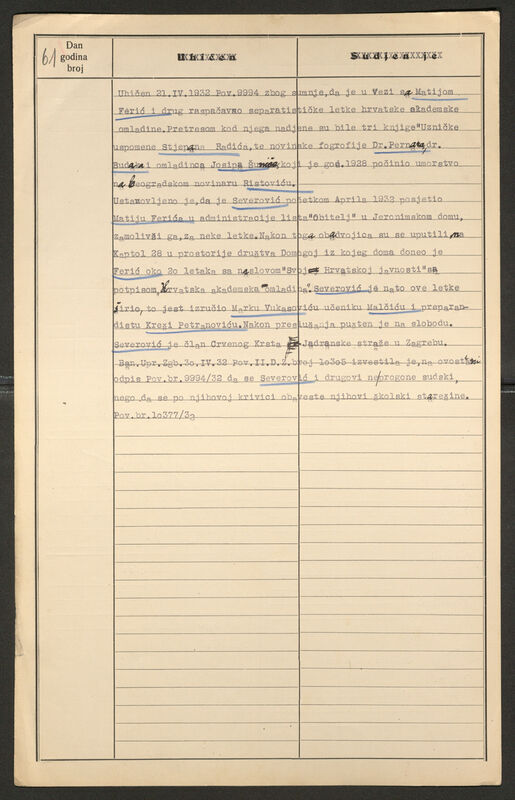 61
Dan
godina
broj
Uhićen
Sudjen je
Uhićen 21.IV.1932 Pov.9994 zbog sumnje,da je u Vezi sa Matijom
Ferić i drug raspačavao separatističke letke hrvatske akademske
omladine.Pretresom kod njega nadjene su bile tri knjige"Uzničke
uspomene Stjepana Radića,te novinske fogrofije Dr.Pernara,dr.
i omladinca Josipa koji je god.1928 počinio umorstvo
na beogradskom novinaru Ristoviću.
Ustanovljeno je,da je Severović početkom Aprila 1932 posjetio
Matiju Ferića u administracije lista"Obitelj" u Jeronimskom domu,
zamolivši ga,za neke letke.Nakon toga obadvojica su se uputili,na
Kaptol 28 u prostorije družtva Domagoj iz kojeg doma doneo je
Ferić oko 2o letaka sa naslovom"Svoj Hrvatskoj javnosti"sa
potpisom,Hrvatska akademska omladina". Severović je nato ove letke
širio,to jest izručio Marku Vukasoviću učeniku Malčiću i preparan-
distu Kreši Petranoviću.Nakon preslušanja pušten je na slobodu.
Severović je član Crvenog Krsta i Jadranske straže u Zagrebu.
Ban.Upr.Zgb.3o.IV.32 Pov.II.D.Z.broj 1o3o5 izvestila je,na ovostrani
odpis Pov.br.9994/32 da se Severović i drugovi neprogone sudski,
nego,da se po njihovoj krivici obaveste njihovi školski starešine.
Pov.br.1o377/32